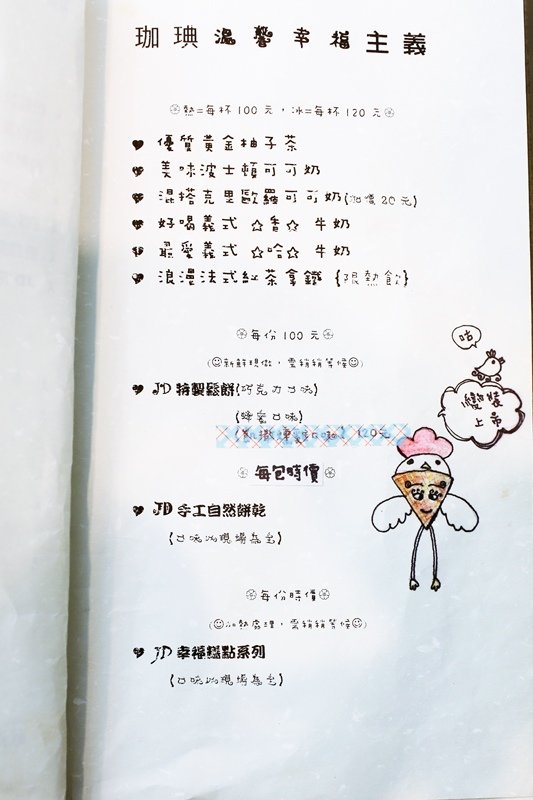 珈琠溫馨幸福主義
熱=每杯100元，冰=每杯120元
優質黃金柚子茶
美味波士頓可可奶
混搭克里歐羅可可奶(加價20元)
好喝義式☆香☆牛奶
最愛義式☆哈☆牛奶
浪漫法式紅茶拿鐵{限熱飲}
每份100元
(☺新鮮現做，需稍稍等候☺)
JD特製鬆餅(巧克力口味)
(蜂蜜口味)
120元
每包時價
JD手工自然餅乾
{口味以現場為主}
每份時價
(☺加熱處理，需稍稍等候☺)
JD幸福糕點系列
{口味以現場為主}
咕
變裝
上市